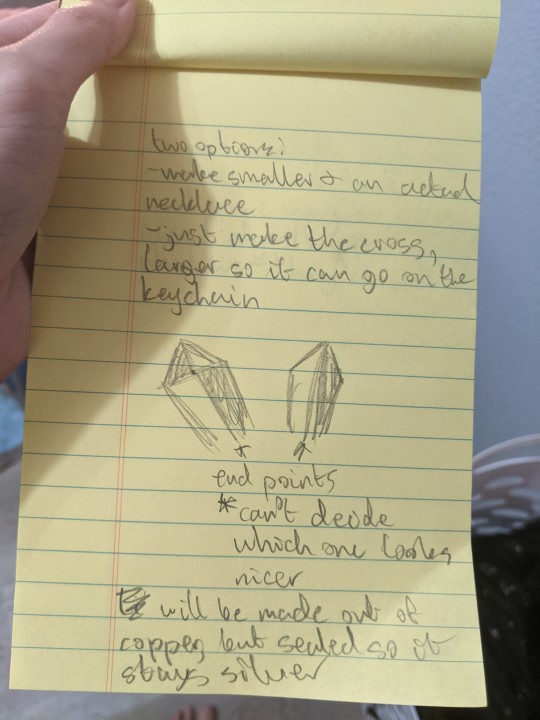 two options:
-make smaller & an actual
necklace
-just make the cross,
larger so it can go on the
keychain
end points
*can't decide
which one looks
nicer
will be made out of
copper, but sealed so it
stays silver